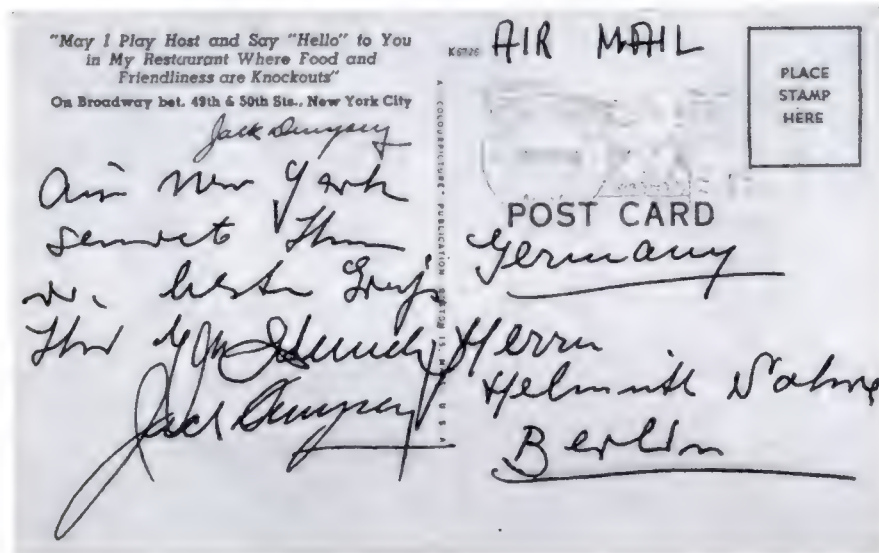 "May I Play Host and Say "Hello" to You
in My Restaurant Where Food and
Friendliness are Knockouts"
On Broadway bet. 49th & 50th Sts., New York City
Jack Dempsey
Aus New York
sendet Ihnen
beste Grüße
Ihr
Jack Dempsey
A COLOURPICTURE PUBLICATION BOSTON 15, U S A
K6726
AIR MAIL
PLACE
STAMP
HERE
POST CARD
Germany
Herrn
Helmuth
Berlin